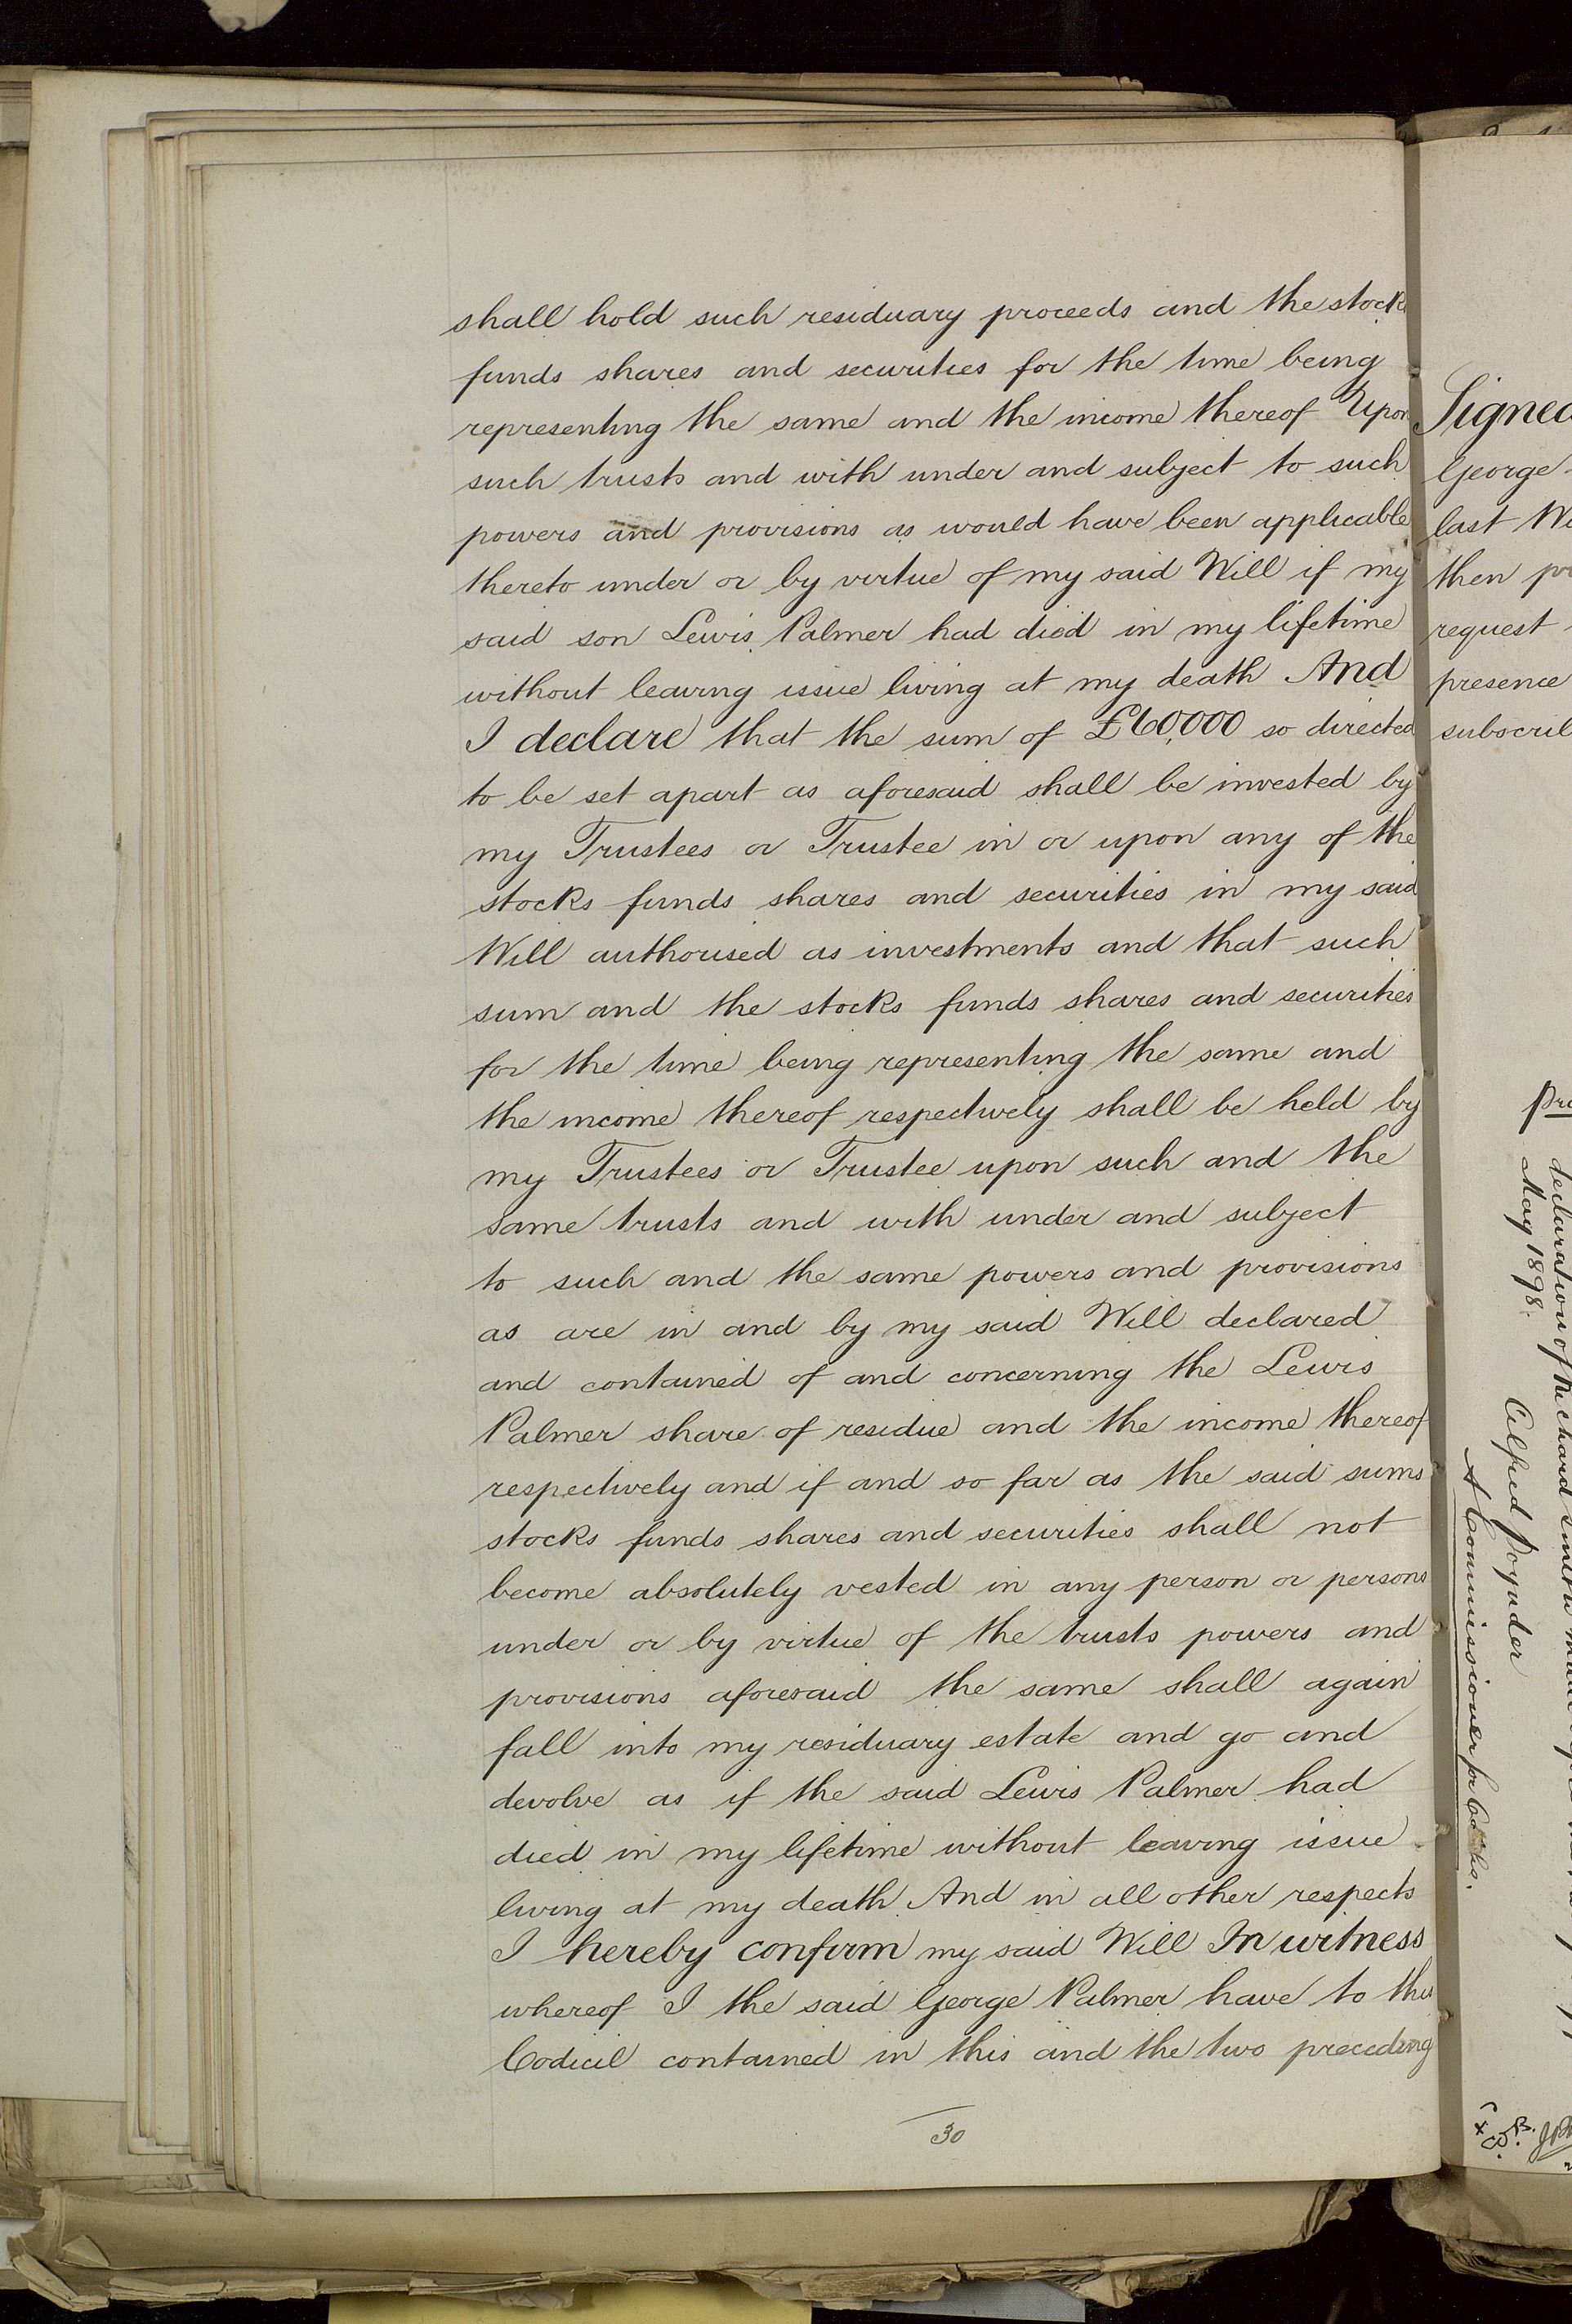 shall hold such residuary proceeds and the stocks
funds shares and securities for the time being
representing the same and the income thereof Upon
such trusts and with under and subject to such
powers and provisions as would have been applicable
thereto under or by virtue of my said Will if my
said son Lewis Palmer had died in my lifetime
without leaving issue living at my death And
I declare that the sum of £60,000 so directed
to be set apart as aforesaid shall be invested by
my Trustees or Trustee in or upon any of the
stocks funds shares and securities in my said
Will authorised as investments and that such
sum and the stocks funds shares and securities
for the time being representing the same and
the income thereof respectively shall be held by
my Trustees or Trustee upon such and the
same trusts and with under and subject
to such and the same powers and provisions
as are in and by my said Will declared
and contained of and concerning the Lewis
Palmer share of residue and the income thereof
respectively and if and so far as the said sums
stocks funds shares and securities shall not
become absolutely vested in any person or persons
under or by virtue of the trusts powers and
provisions aforesaid the same shall again
fall into my residuary estate and go and
devolve as if the said Lewis Palmer had
died in my lifetime without leaving issue
living at my death And in all other respects
I hereby confirm my said Will In witness
whereof I the said George Palmer have to this
Codicil contained in this and the two preceding
30
Signed
George
last Wi
then pr
request
presence
subscrib
declaration of Richard Smith
May 1898.
Alfred Poynder
A Commissioner for Oaths.